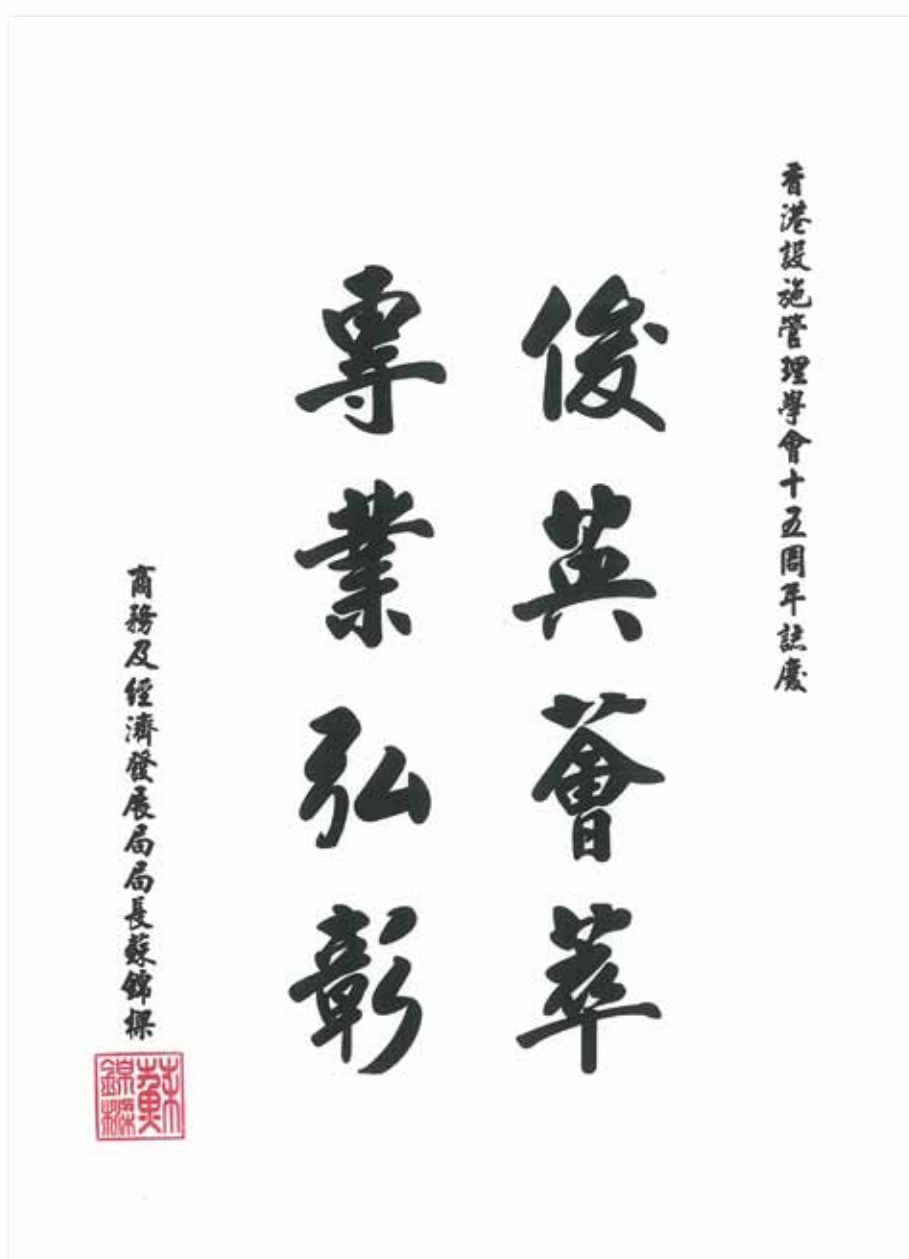 香港設施管理學會十五周年誌慶
俊英薈萃
專業弘彰
商務及經濟發展局局長蘇錦樑
蘇錦樑